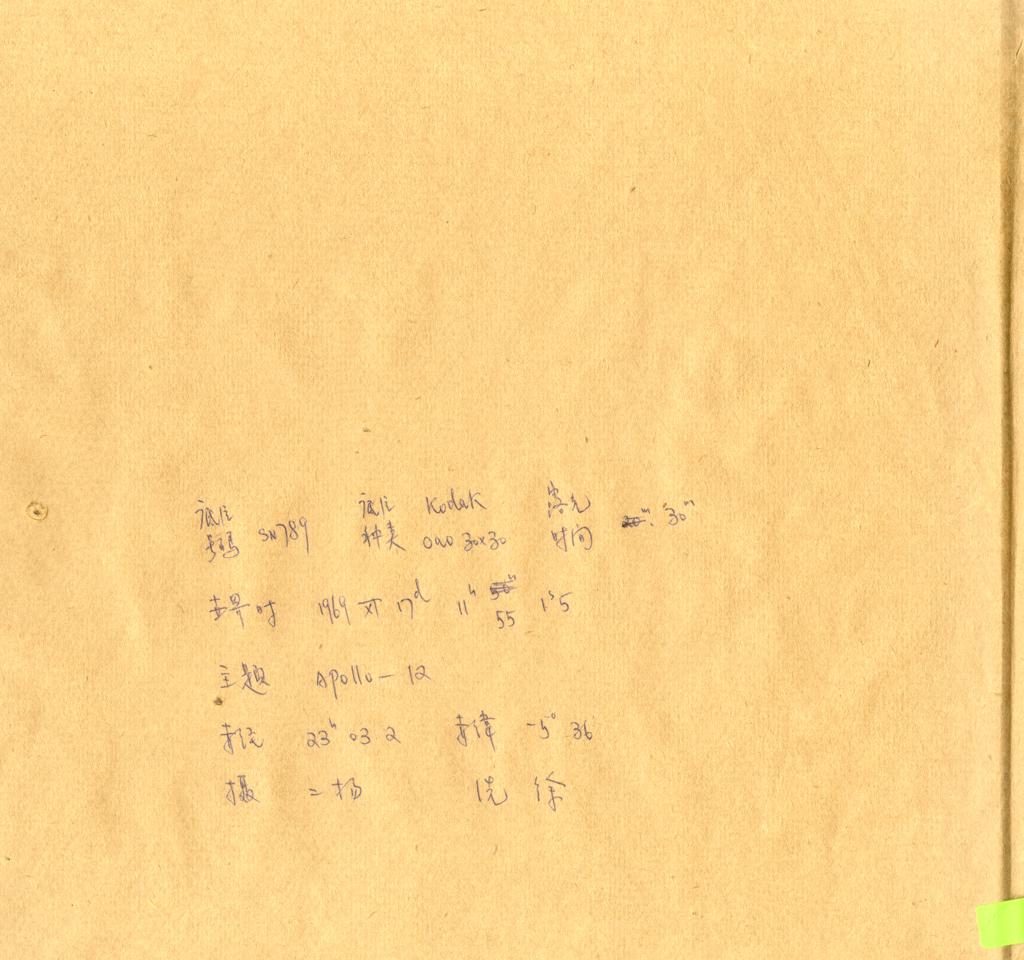 底片号码 SN789 底片种类 Kodak OaO 30x30 露光时间 30ᵐ
世界时 1969 XI 17ᵈ 11ʰ 55 1ˢ5
主题 Apollo-12
赤经 23ʰ 03 2 赤纬 -5° 36
摄 二杨 洗 徐